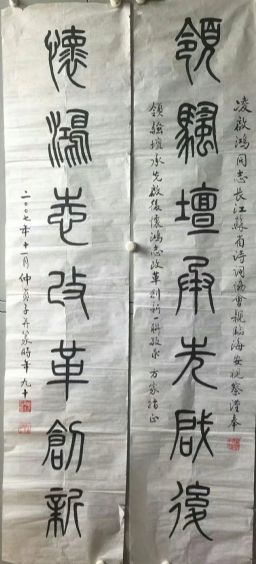 領騷壇承先啟後
凌啟鴻同志長江蘇省詩詞協會親臨海安視察謹奉
領騷壇承先啟後懷鴻志改革創新一聯敬求 方家指正
懷鴻志改革創新
二〇〇七年十一月仲貞子并篆時年九十